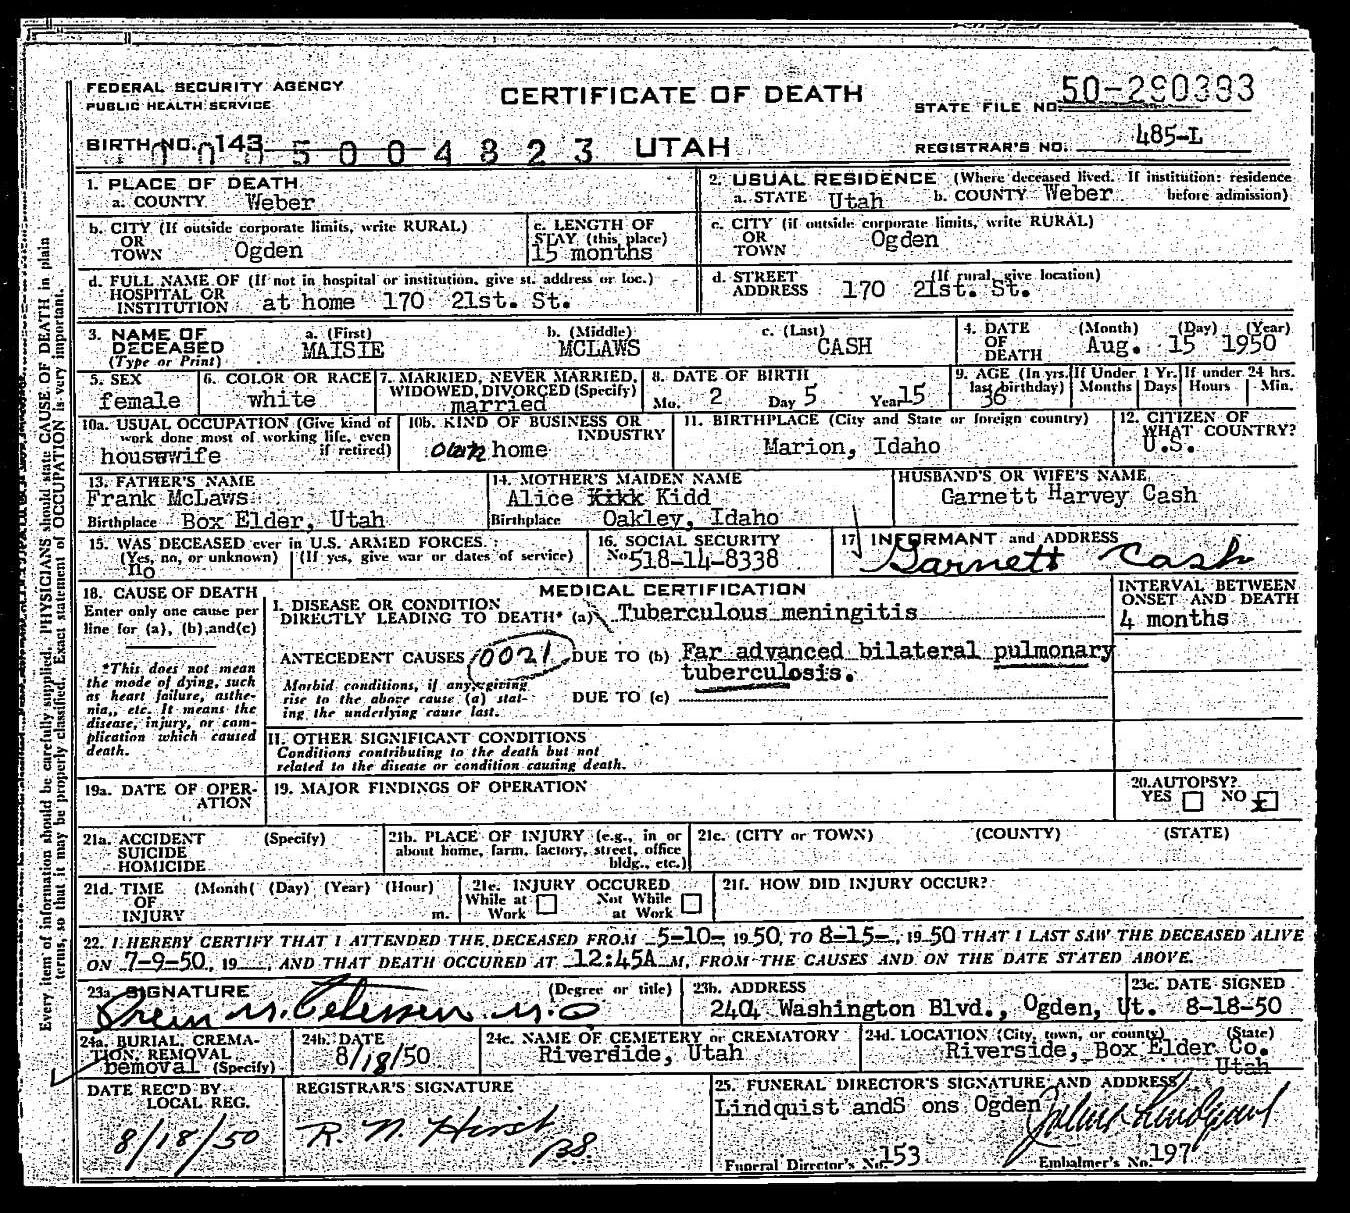 FEDERAL SECURITY AGENCY
PUBLIC HEALTH SERVICE
CERTIFICATE OF DEATH
STATE FILE NO. 50-290393
BIRTH NO. 143
0005004823 UTAH
REGISTRAR'S NO. 485-L
1. PLACE OF DEATH
a. COUNTY Weber
2. USUAL RESIDENCE (Where deceased lived. If institution: residence before admission)
a. STATE Utah b. COUNTY Weber
b. CITY (If outside corporate limits, write RURAL)
OR
TOWN Ogden
c. LENGTH OF
STAY (this place)
15 months
c. CITY (if outside corporate limits, write RURAL)
OR
TOWN Ogden
d. FULL NAME OF (If not in hospital or institution, give st. address or loc.)
HOSPITAL OR
INSTITUTION at home 170 21st. St.
d. STREET (If rural, give location)
ADDRESS 170 21st. St.
3. NAME OF
DECEASED
(Type or Print)
a. (First) MAISIE
b. (Middle) MCLAWS
c. (Last) CASH
4. DATE
OF
DEATH
(Month) (Day) (Year)
Aug. 15 1950
5. SEX
female
6. COLOR OR RACE
white
7. MARRIED, NEVER MARRIED,
WIDOWED, DIVORCED (Specify)
married
8. DATE OF BIRTH
Mo. 2 Day 5 Year 15
9. AGE (In yrs. last birthday) 36
If Under 1 Yr. Months Days
If under 24 hrs. Hours Min.
10a. USUAL OCCUPATION (Give kind of
work done most of working life, even
if retired)
housewife
10b. KIND OF BUSINESS OR
INDUSTRY
own home
11. BIRTHPLACE (City and State or foreign country)
Marion, Idaho
12. CITIZEN OF
WHAT COUNTRY?
U.S.
13. FATHER'S NAME
Frank McLaws
Birthplace Box Elder, Utah
14. MOTHER'S MAIDEN NAME
Alice Kidd
Birthplace Oakley, Idaho
HUSBAND'S OR WIFE'S NAME
Garnett Harvey Cash
15. WAS DECEASED ever in U.S. ARMED FORCES
(Yes, no, or unknown) (If yes, give war or dates of service)
no
16. SOCIAL SECURITY
No. 518-14-8338
17. INFORMANT and ADDRESS
Garnett Cash
18. CAUSE OF DEATH
Enter only one cause per
line for (a), (b), and (c)
*This does not mean
the mode of dying, such
as heart failure, asthe-
nia, etc. It means the
disease, injury, or com-
plication which caused
death.
MEDICAL CERTIFICATION
I. DISEASE OR CONDITION
DIRECTLY LEADING TO DEATH* (a) Tuberculous meningitis
ANTECEDENT CAUSES 0021 DUE TO (b) Far advanced bilateral pulmonary
tuberculosis.
Morbid conditions, if any, giving
rise to the above cause (a) stat-
ing the underlying cause last.
DUE TO (c)
INTERVAL BETWEEN
ONSET AND DEATH
4 months
II. OTHER SIGNIFICANT CONDITIONS
Conditions contributing to the death but not
related to the disease or condition causing death.
19a. DATE OF OPER-
ATION
19. MAJOR FINDINGS OF OPERATION
20. AUTOPSY?
YES NO x
21a. ACCIDENT (Specify)
SUICIDE
HOMICIDE
21b. PLACE OF INJURY (e.g., in or
about home, farm, factory, street, office
bldg., etc.)
21c. (CITY or TOWN) (COUNTY) (STATE)
21d. TIME (Month( (Day) (Year) (Hour)
OF
INJURY m.
21e. INJURY OCCURED
While at Work Not While at Work
21f. HOW DID INJURY OCCUR?
22. I HEREBY CERTIFY THAT I ATTENDED THE DECEASED FROM 5-10-, 1950, TO 8-15-, 1950 THAT I LAST SAW THE DECEASED ALIVE
ON 7-9-50, 19__, AND THAT DEATH OCCURED AT 12:45A M, FROM THE CAUSES AND ON THE DATE STATED ABOVE.
23a. SIGNATURE (Degree or title)
M.D
23b. ADDRESS
2404 Washington Blvd., Ogden, Ut.
23c. DATE SIGNED
8-18-50
24a. BURIAL, CREMA-
TION, REMOVAL
removal (Specify)
24b. DATE
8/18/50
24c. NAME OF CEMETERY or CREMATORY
Riverside, Utah
24d. LOCATION (City, town, or county) (State)
Riverside, Box Elder Co.
Utah
DATE REC'D BY
LOCAL REG.
8/18/50
REGISTRAR'S SIGNATURE
R. N. Hirst
25. FUNERAL DIRECTOR'S SIGNATURE AND ADDRESS
Lindquist andS ons Ogden
Funeral Director's No. 153
Embalmer's No. 197
Every item of information should be carefully supplied. PHYSICIANS should state CAUSE OF DEATH in plain
terms, so that it may be properly classified. Exact statement of OCCUPATION is very important.